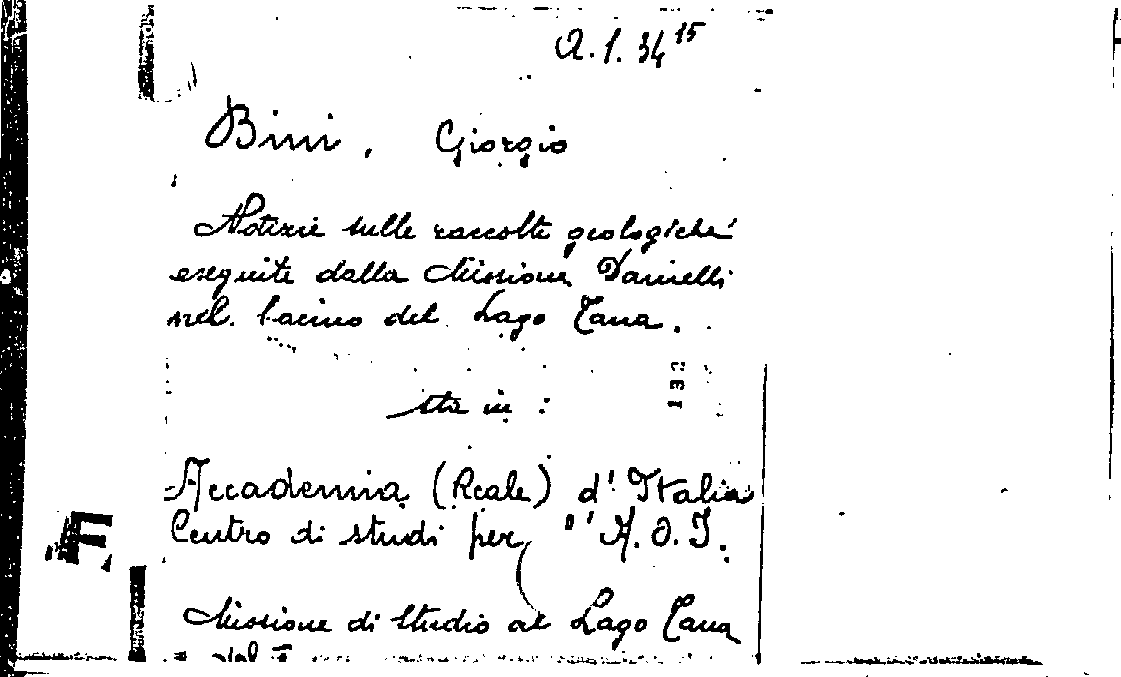 A. 1. 34 15
Bini, Giorgio
Notizie sulle raccolte geologiche
eseguite dalla Missione Dainelli
nel bacino del Lago Tana.
132
sta in :
Accademia (Reale) d'Italia
Centro di studi per l'A.O.I.
F
Missione di Studio al Lago Tana
Vol I